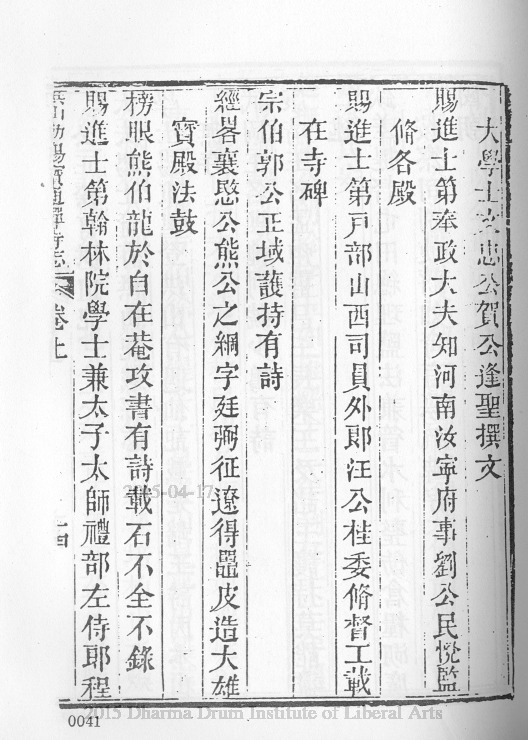 大學士文忠公賀公逢聖撰文
賜進士第奉政大夫知河南汝寧府事劉公民悅監
修各殿
賜進士第戸部山西司員外郎汪公桂委脩督工載
在寺碑
宗伯郭公正域護持有詩
經畧襄愍公熊公之綱字廷弼征遼得鼉皮造大雄
寶殿法鼓
榜眼熊伯龍於白在菴攻書有詩載石不全不錄
賜進士第翰林院學士兼太子太師禮部左侍郎程
寶通禪寺志
卷上
十四
2015-04-17
0041
2015 Dharma Drum Institute of Liberal Arts